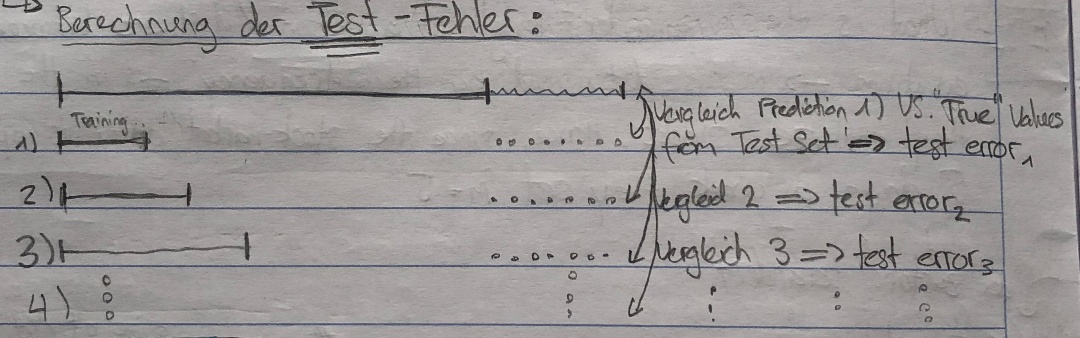 Berechnung der Test-Fehler:
Training
1) Vergleich Prediction 1) VS. "True" Values
from Test Set => test error1
2) Vegleid 2 => test error2
3) Vergleich 3 => test error3
4)